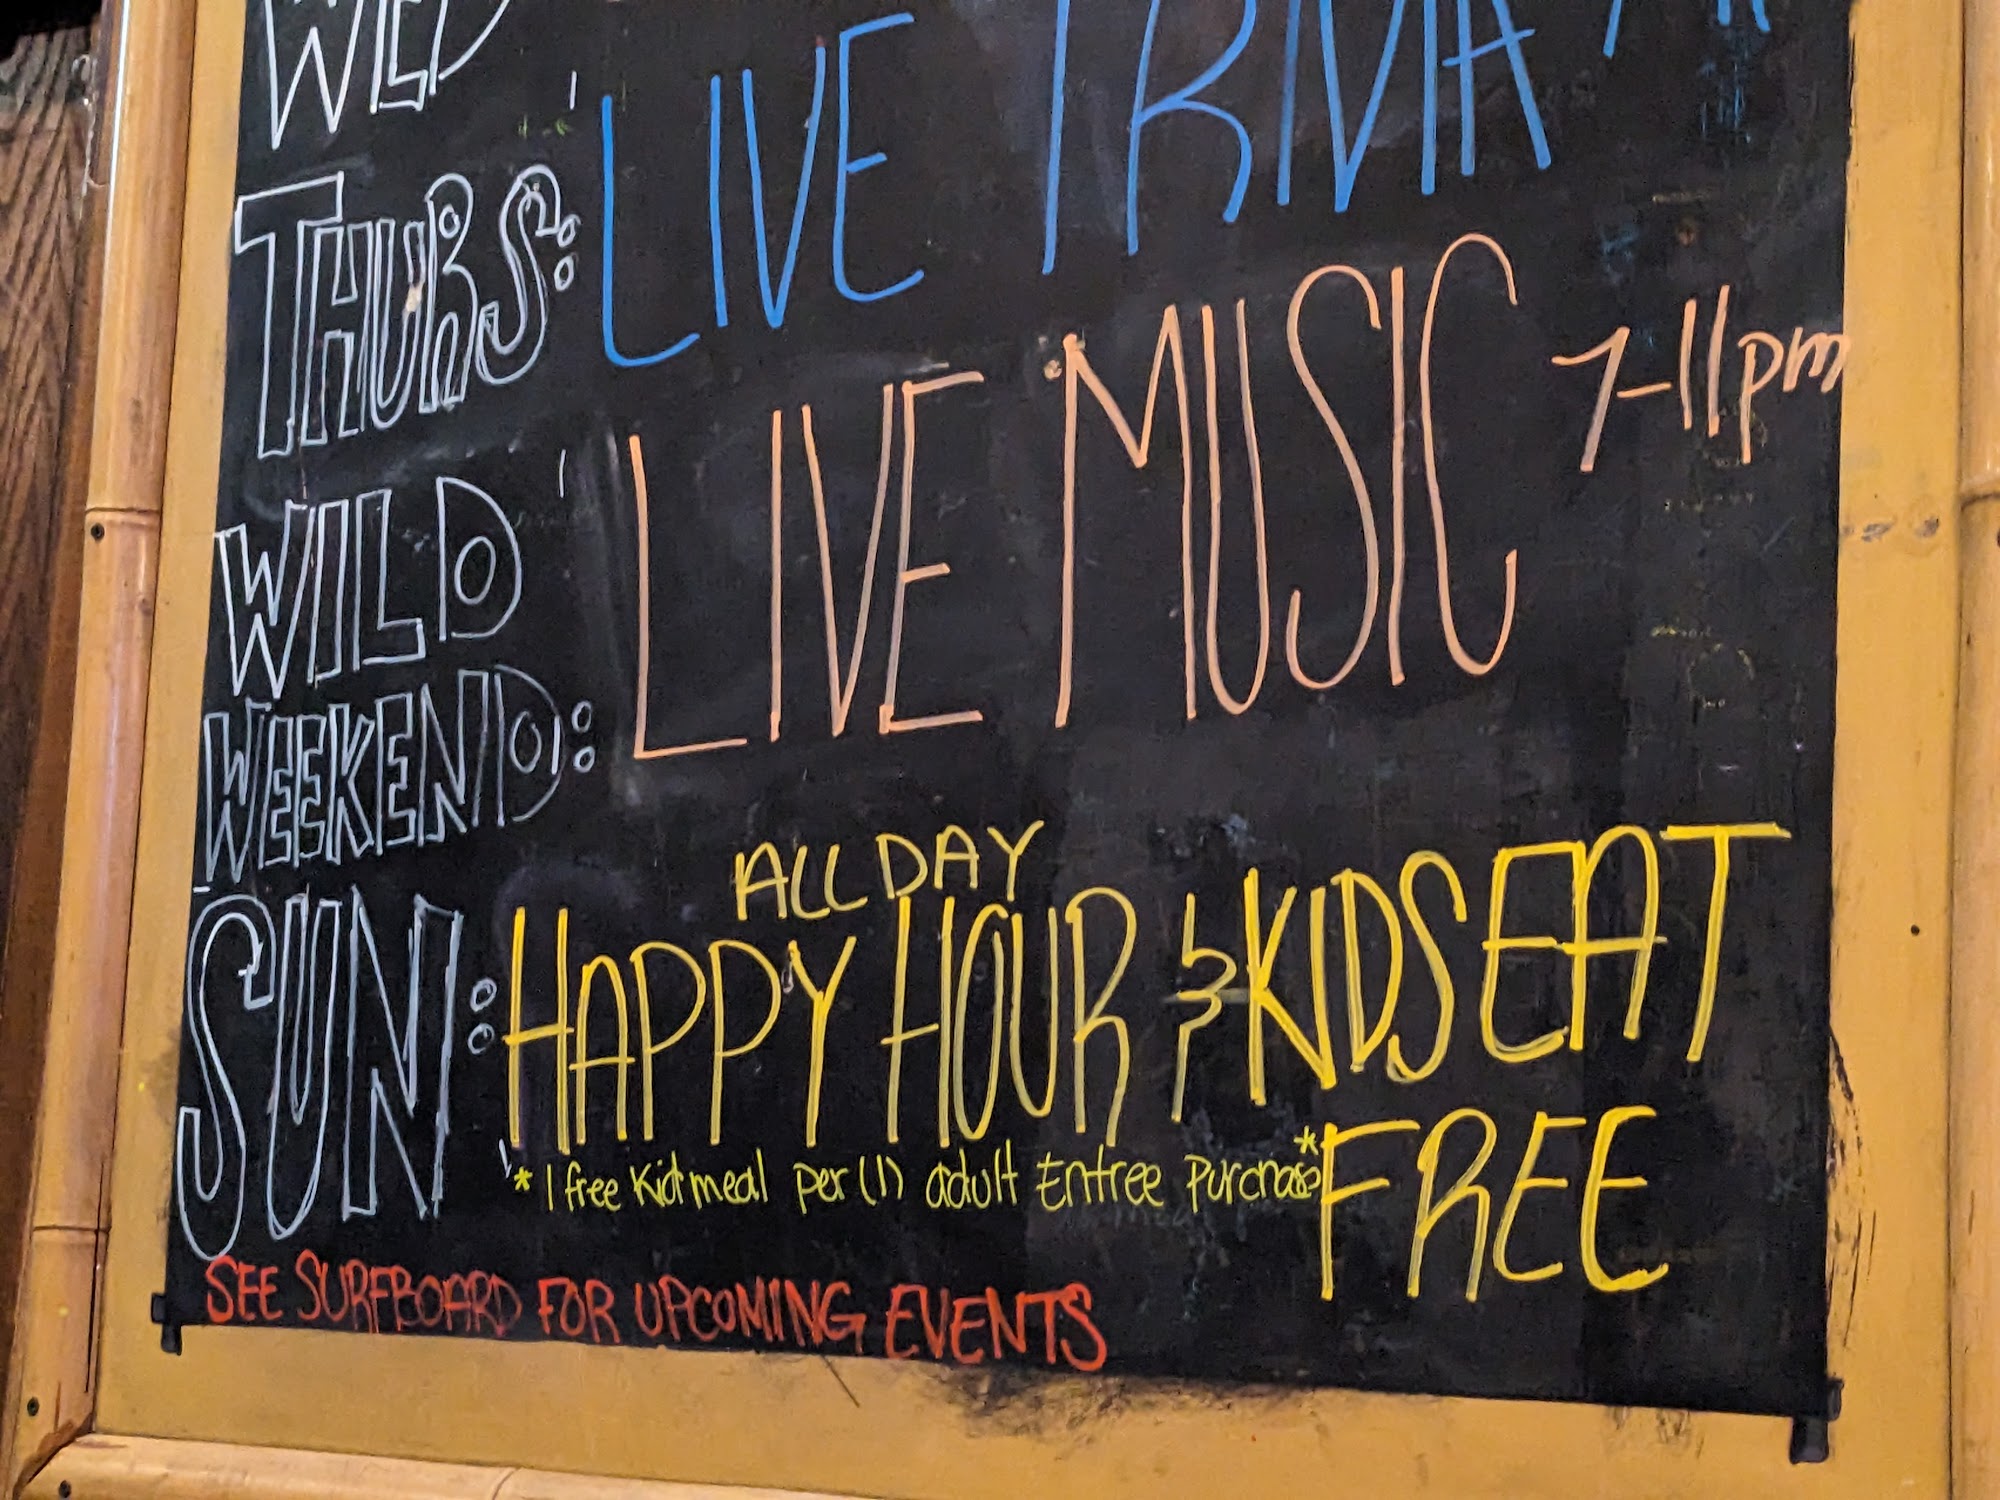 WED
THURS: LIVE TRIVIA
WILD WEEKEND: LIVE MUSIC 7-11pm
SUN: ALL DAY HAPPY HOUR & KIDS EAT FREE
* 1 free Kid meal per (1) adult Entree Purchase *
SEE SURFBOARD FOR UPCOMING EVENTS